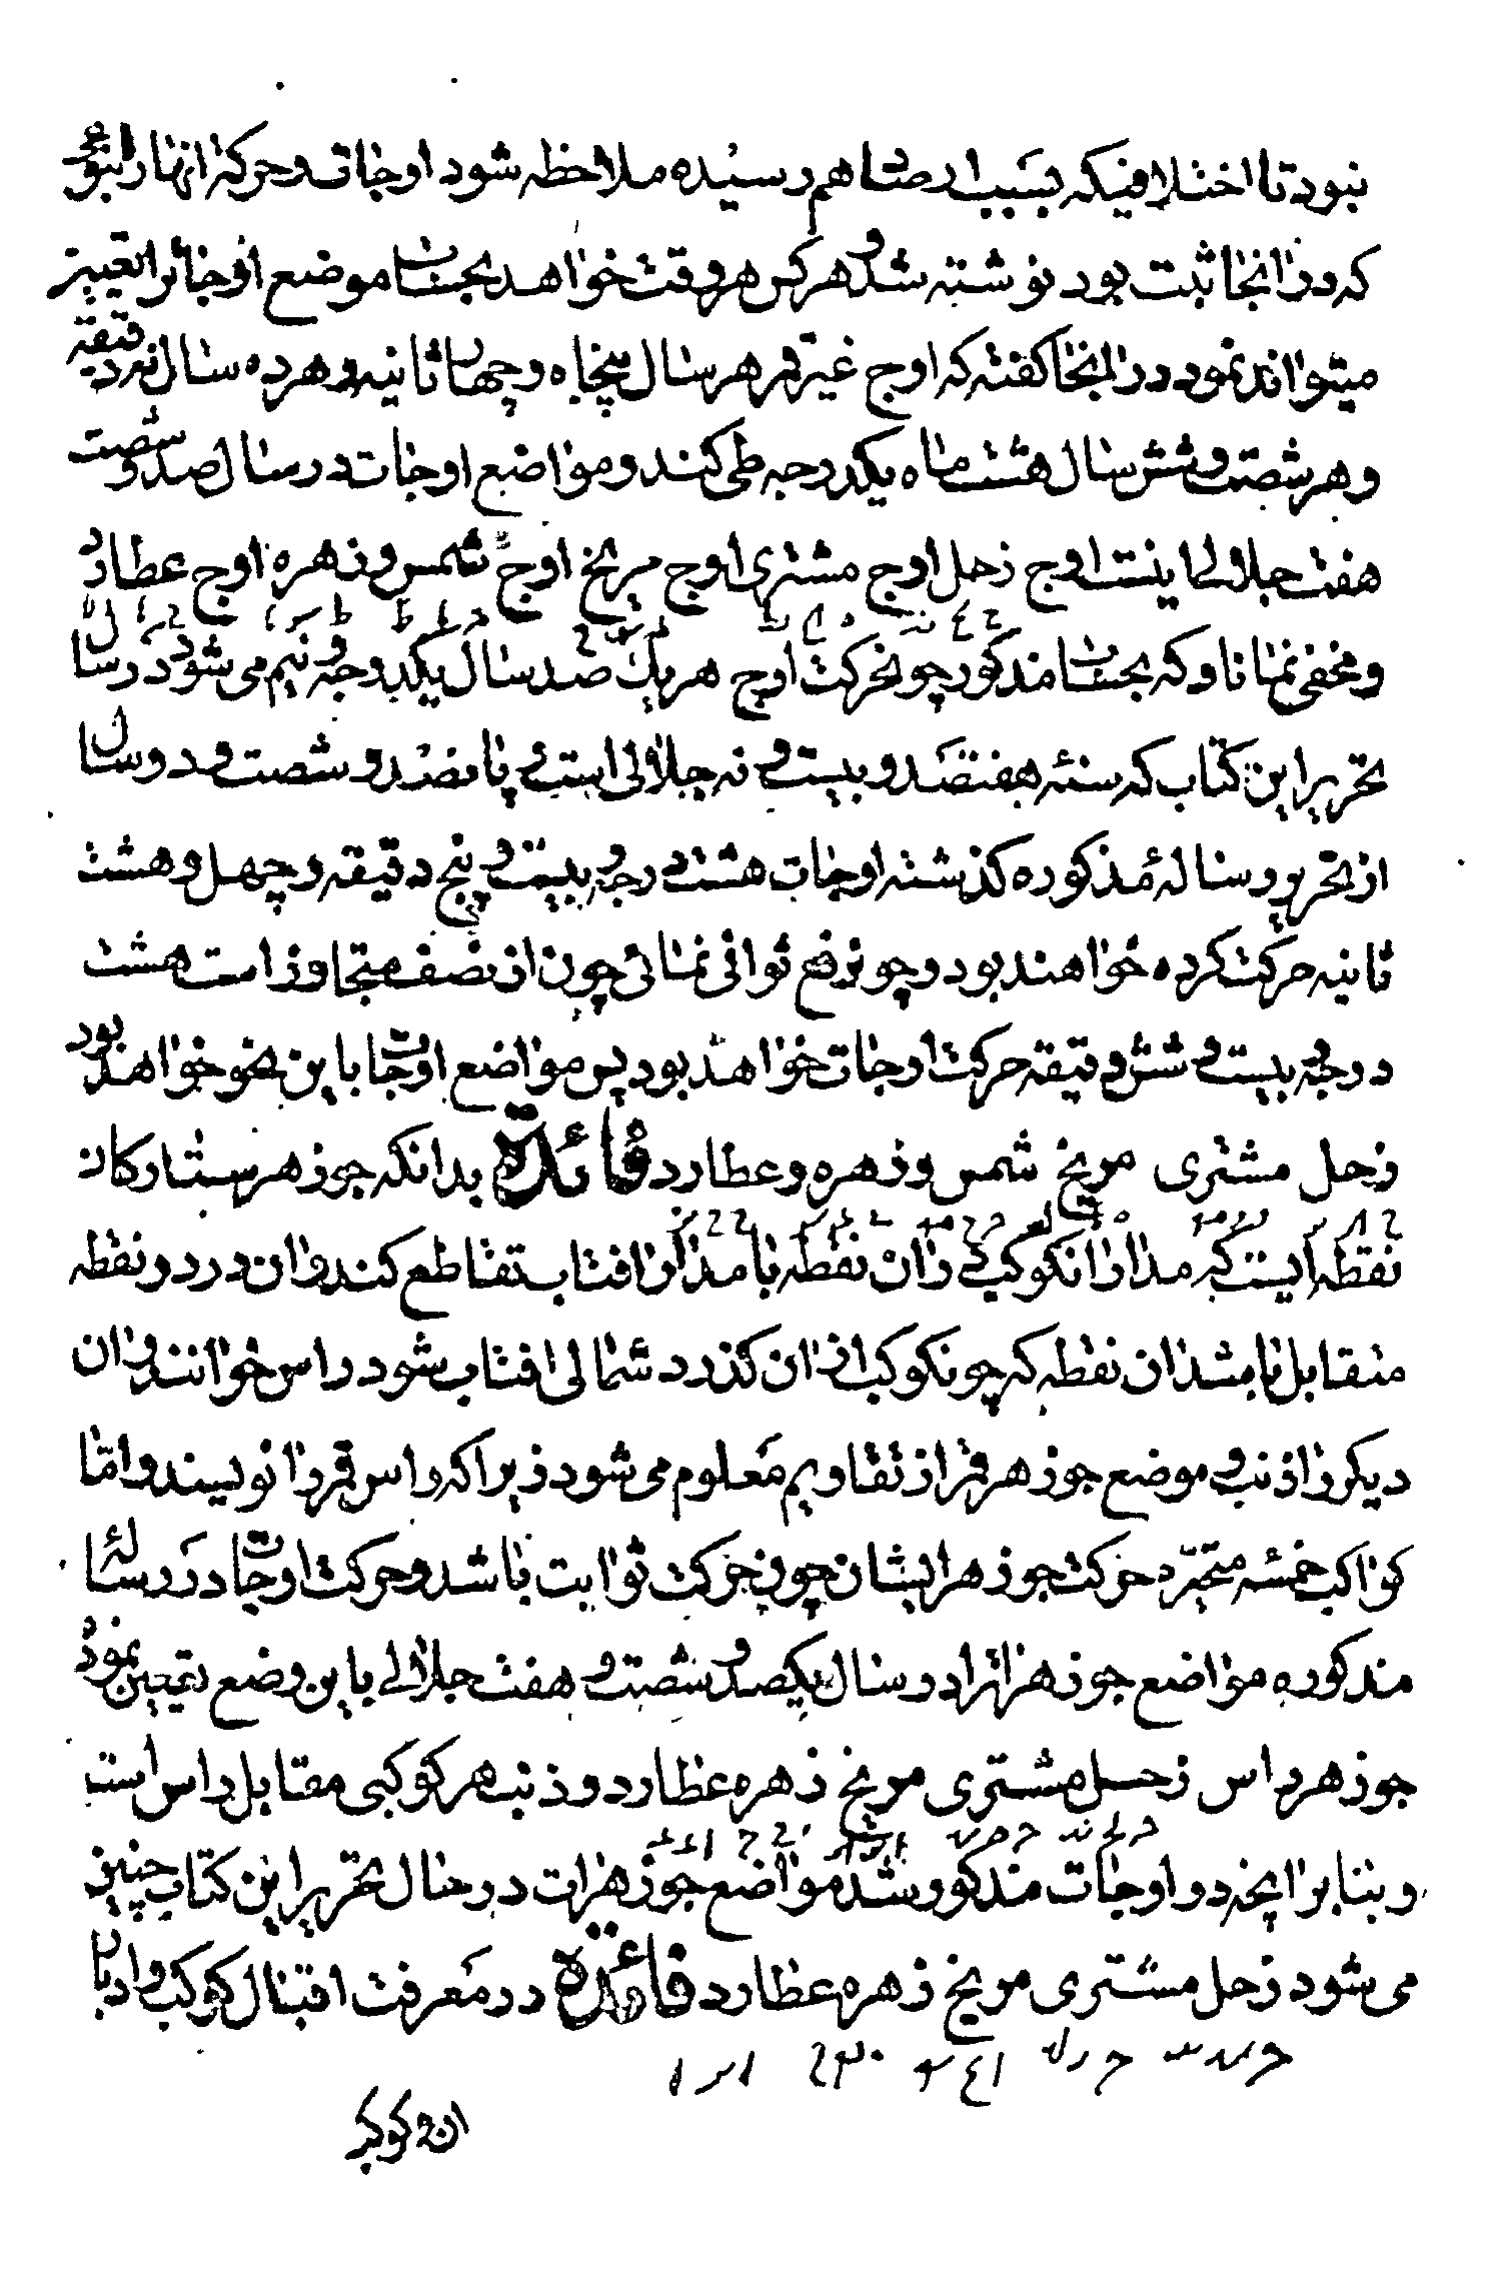 نبود تا اختلافیکه بسبب ارصاد هم رسیده ملاحظه شود اوجات و حرکة انها را بنوعی
که در انجا ثبت بود نوشته شد و هرکس هر وقت خواهد بحساب موضع اوجات را تعیین
میتواند نمود در انجا کفته که اوج غیر قمر هر سال پنجاه و چهار ثانیه و هر ده سال نه دقیقه
و هر شصت و شش سال هشت ماه یکدرجه طی کند و مواضع اوجات در سال صد و شصت
هفت جلالی اینست اوج زحل اوج مشتری اوج مریخ اوج شمس و زهره اوج عطارد
و مخفی نماناد که بحساب مذکور چون حرکت اوج هر یک صد سال یکدرجه و نیم می شود در سال
تحریر این کتاب که سنه هفتصد و بیست و نه جلالی است و پانصد و شصت و دو سال
از تحریر رساله مذکوره کذشته اوجات هشت درجه و بیست و پنج دقیقه و چهل و هشت
ثانیه حرکت کرده خواهند بود و چون رفع ثوانی نمائی چون از نصف متجاوز است هشت
درجه و بیست و شش دقیقه حرکت اوجات خواهد بود پس مواضع اوجات باین نحو خواهد بود
زحل مشتری مریخ شمس و زهره و عطارد فائدة بدانکه جوزهر ستارکان
نقطه ایست که مدار انکوکب در ان نقطه با مدار افتاب تقاطع کند و ان در دو نقطه
متقابل باشد ان نقطه که چون کوکب از ان کذرد شمالی افتاب شود راس خوانند و ان
دیکر را ذنب و موضع جوزهر قمر از تقاویم معلوم می شود زیرا که راس قمر را نویسند و اما
کواکب خمسه متحیره حرکت جوزهر ایشان چون حرکت ثوابت باشد و حرکت اوجات در رساله
مذکوره مواضع جوزهرات را در سال یکصد و شصت و هفت جلالی باین وضع تعیین نموده
جوزهر راس زحل مشتری مریخ زهره عطارد و ذنب هر کوکبی مقابل راس است
و بنا بر انچه در اوجات مذکور شد مواضع جوزهرات در حال تحریر این کتاب چنین
می شود زحل مشتری مریخ زهره عطارد فائدة در معرفت اقبال کوکب و ادبار
ان کوکب